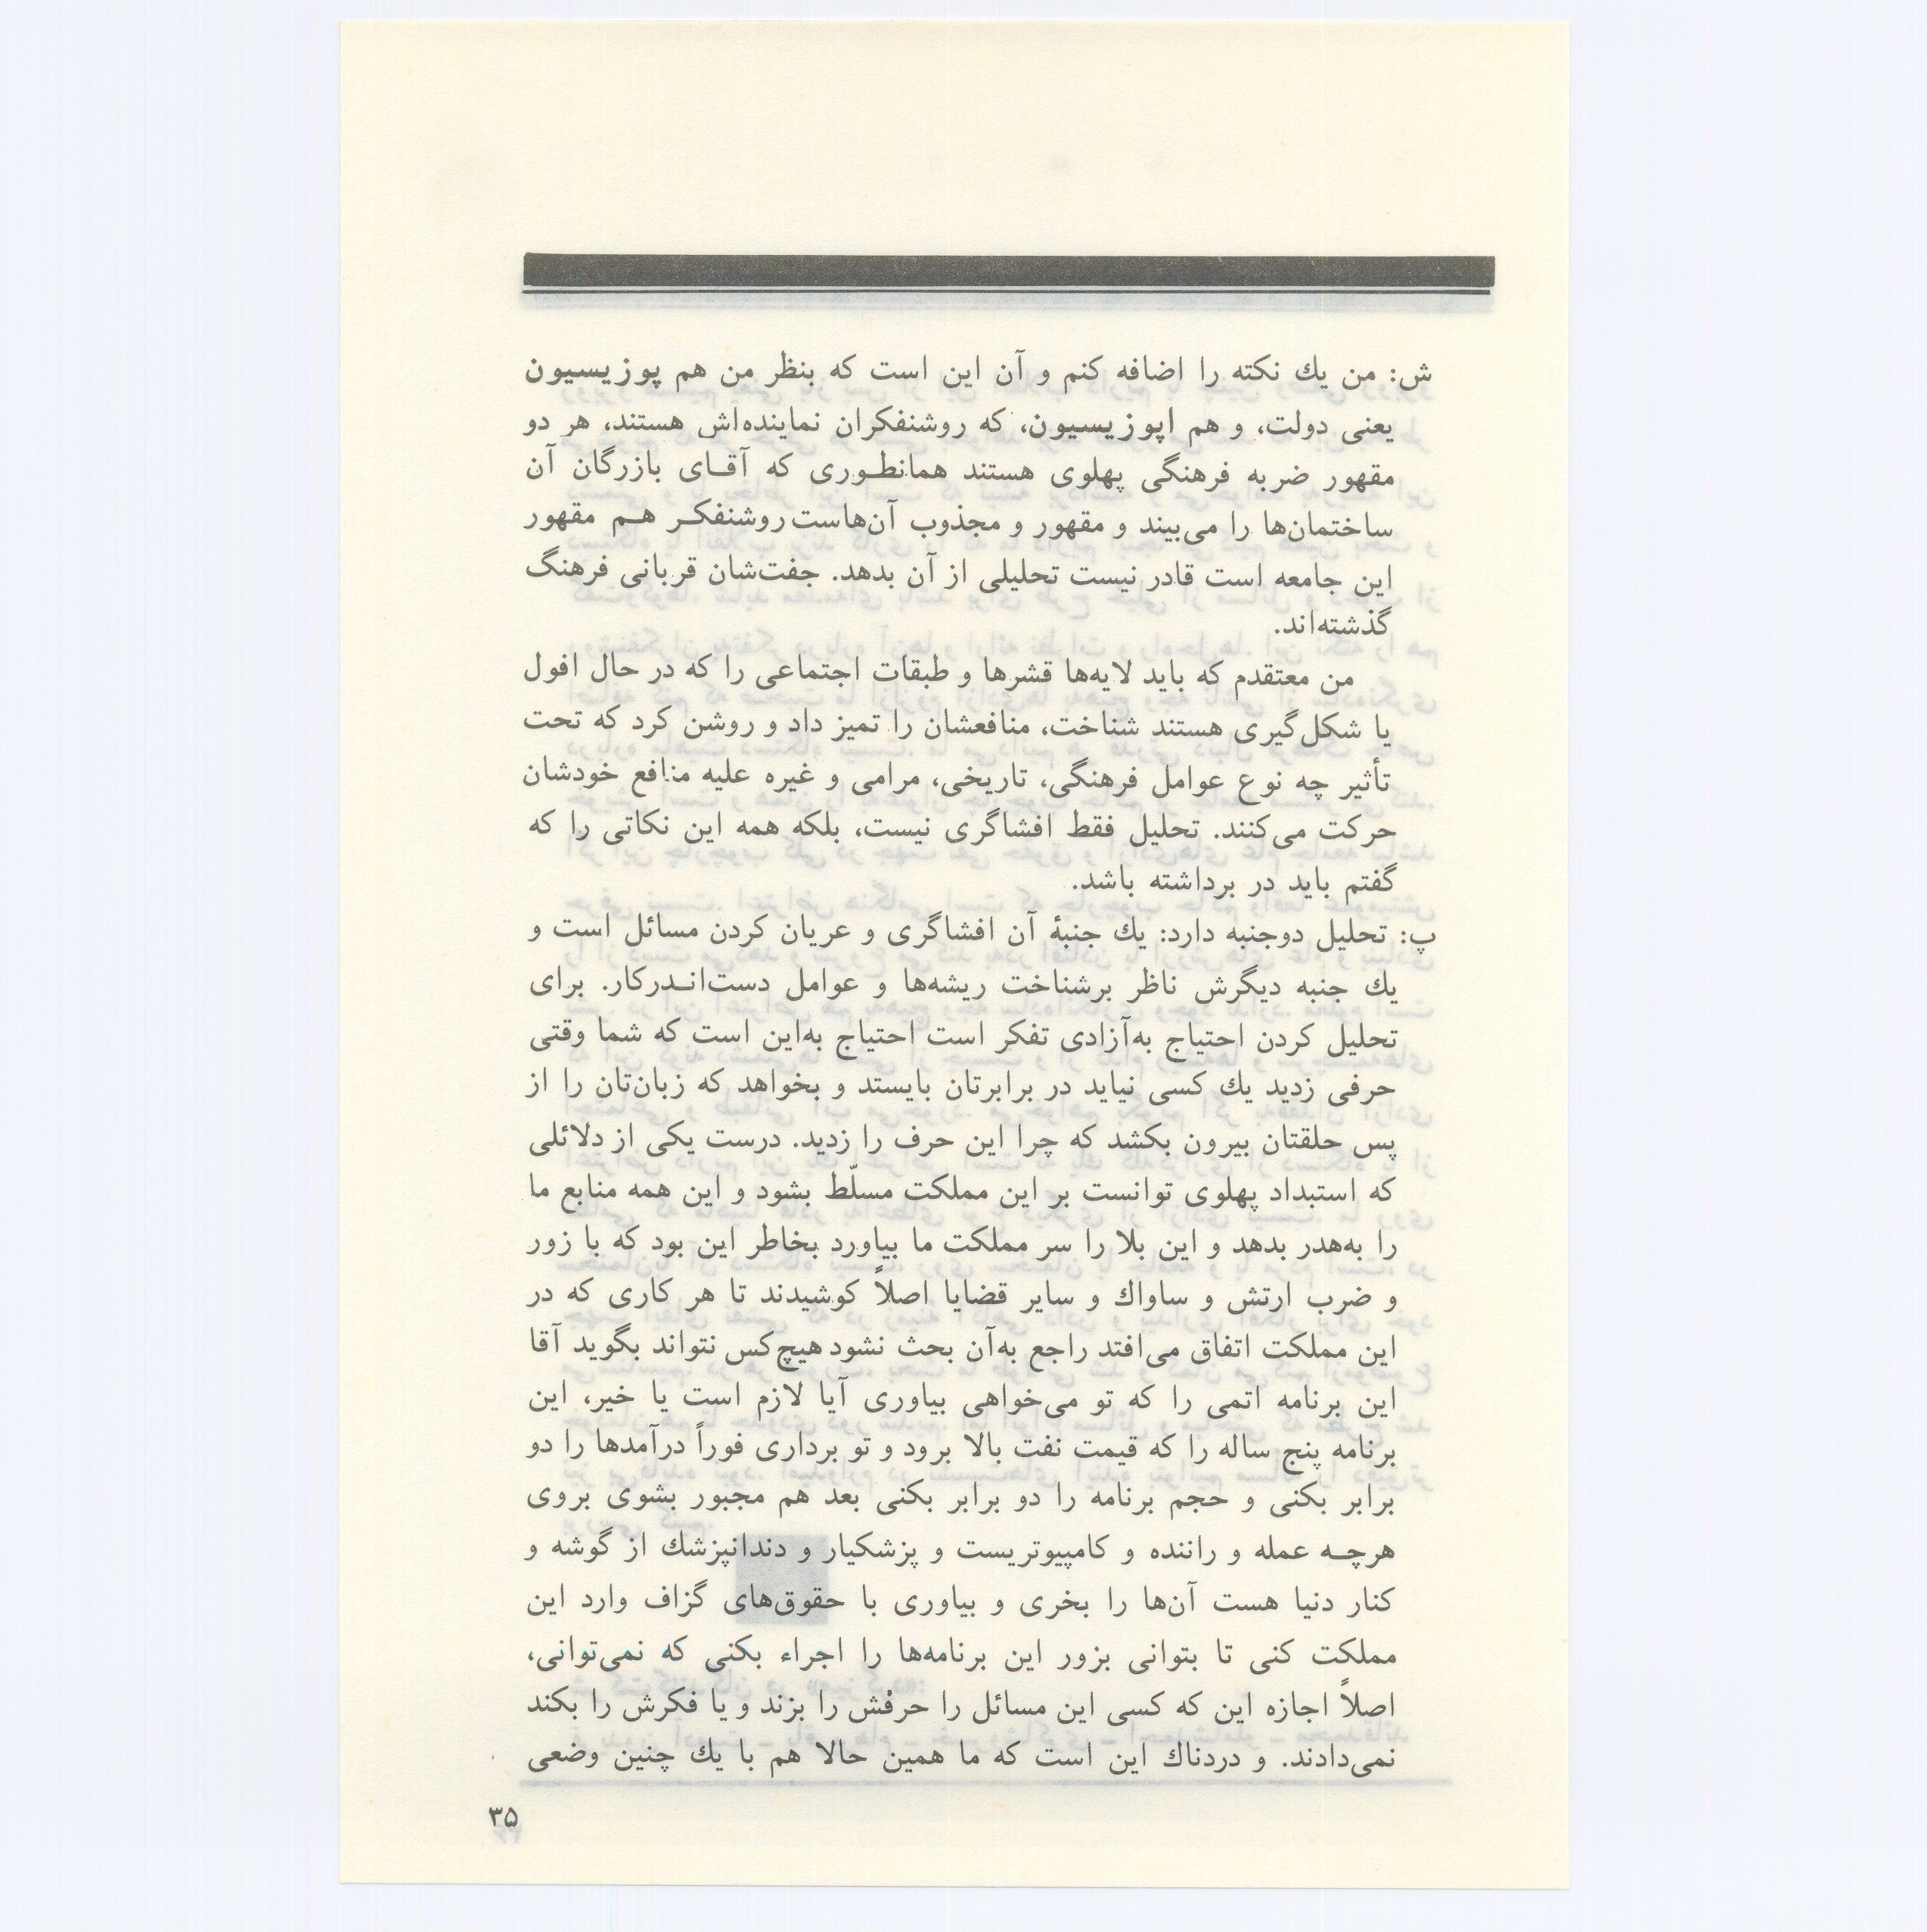 ش: من يك نكته را اضافه كنم و آن این است كه بنظر من هم پوزیسیون
یعنی دولت، و هم اپوزیسیون، كه روشنفكران نماینده‌اش هستند، هر دو
مقهور ضربه فرهنگی پهلوی هستند همانطـوری كه آقـای بازرگان آن
ساختمان‌ها را می‌بیند و مقهور و مجذوب آن‌هاست روشنفكـر هـم مقهور
این جامعه است قادر نیست تحلیلی از آن بدهد. جفت‌شان قربانی فرهنگ
گذشته‌اند.
من معتقدم كه باید لایه‌ها قشرها و طبقات اجتماعی را كه در حال افول
یا شكل‌گیری هستند شناخت، منافعشان را تمیز داد و روشن كرد كه تحت
تأثیر چه نوع عوامل فرهنگی، تاریخی، مرامی و غیره علیه منافع خودشان
حركت می‌كنند. تحلیل فقط افشاگری نیست، بلكه همه این نكاتی را كه
گفتم باید در برداشته باشد.
پ: تحلیل دوجنبه دارد: يك جنبهٔ آن افشاگری و عریان كردن مسائل است و
يك جنبه دیگرش ناظر برشناخت ریشه‌ها و عوامل دست‌انـدركار. برای
تحلیل كردن احتیاج به‌آزادی تفكر است احتیاج به‌این است كه شما وقتی
حرفی زدید يك كسی نیاید در برابرتان بایستد و بخواهد كه زبان‌تان را از
پس حلقتان بیرون بكشد كه چرا این حرف را زدید. درست یكی از دلائلی
كه استبداد پهلوی توانست بر این مملكت مسلّط بشود و این همه منابع ما
را به‌هدر بدهد و این بلا را سر مملكت ما بیاورد بخاطر این بود كه با زور
و ضرب ارتش و ساواك و سایر قضایا اصلاً كوشیدند تا هر كاری كه در
این مملكت اتفاق می‌افتد راجع به‌آن بحث نشود هیچ‌كس نتواند بگوید آقا
این برنامه اتمی را كه تو می‌خواهی بیاوری آیا لازم است یا خیر، این
برنامه پنج ساله را كه قیمت نفت بالا برود و تو برداری فوراً درآمدها را دو
برابر بكنی و حجم برنامه را دو برابر بكنی بعد هم مجبور بشوی بروی
هرچـه عمله و راننده و كامپیوتریست و پزشكیار و دندانپزشك از گوشه و
كنار دنیا هست آن‌ها را بخری و بیاوری با حقوق‌های گزاف وارد این
مملكت كنی تا بتوانی بزور این برنامه‌ها را اجراء بكنی كه نمی‌توانی،
اصلاً اجازه این كه كسی این مسائل را حرفش را بزند و یا فكرش را بكند
نمی‌دادند. و دردناك این است كه ما همین حالا هم با يك چنین وضعی
۳۵